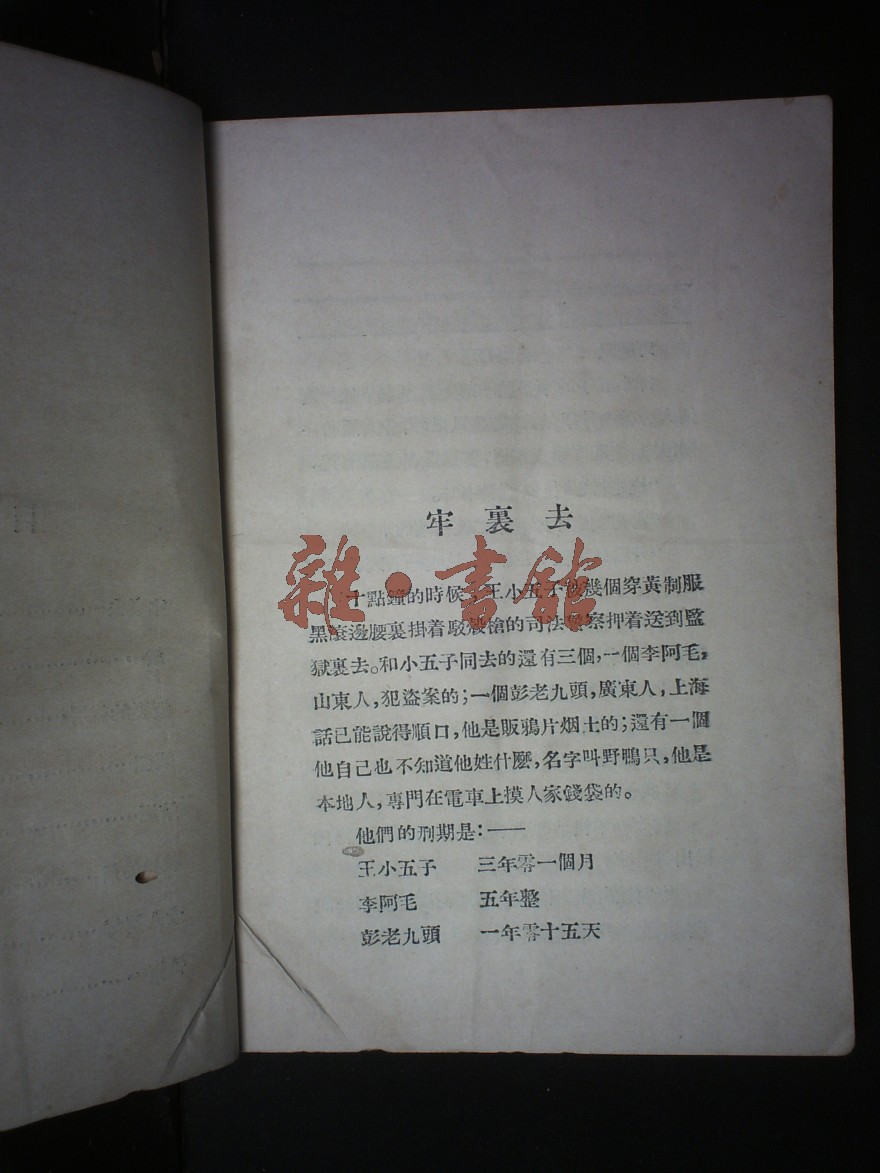 牢裏去
十點鐘的時候，王小五子被幾個穿黃制服
黑滾邊腰裏掛着駁殼槍的司法警察押着送到監
獄裏去。和小五子同去的還有三個，一個李阿毛，
山東人，犯盜案的；一個彭老九頭，廣東人，上海
話已能說得順口，他是販鴉片烟土的；還有一個
他自己也不知道他姓什麽，名字叫野鴨只，他是
本地人，專門在電車上摸人家錢袋的。
他們的刑期是：——
王小五子　三年零一個月
李阿毛　五年整
彭老九頭　一年零十五天
雜·書館